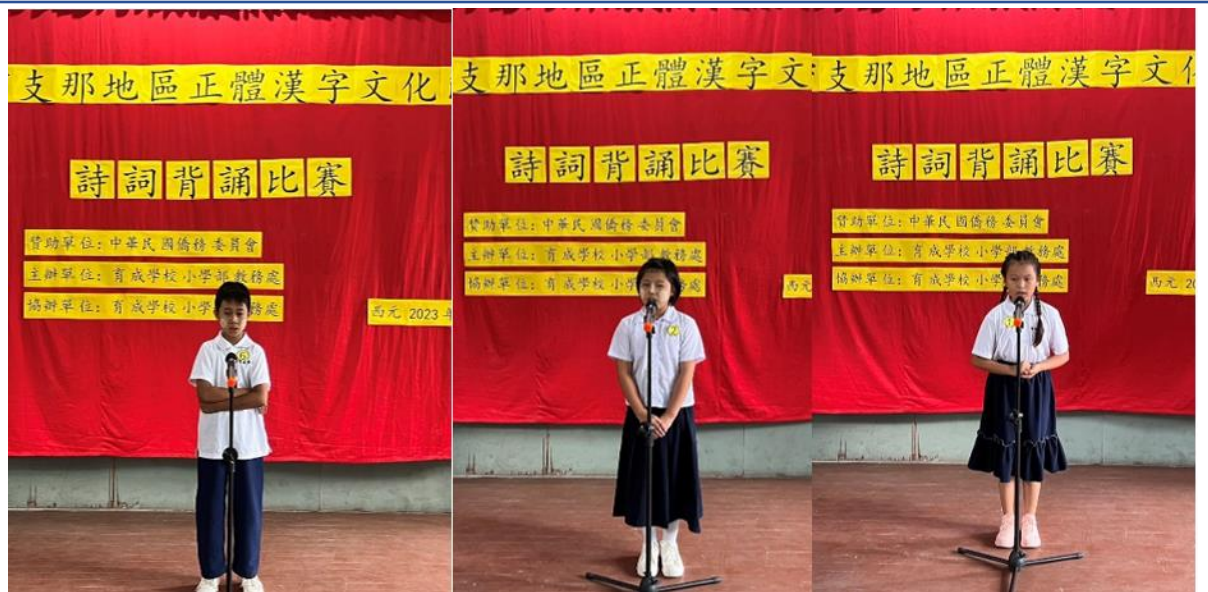 支那地區正體漢字文化
詩詞背誦比賽
贊助單位：中華民國僑務委員會
主辦單位：育成學校小學部教務處
協辦單位：育成學校小學 務處
西元 2023 年
5
支那地區正體漢字文
詩詞背誦比賽
贊助單位：中華民國僑務委員會
主辦單位：育成學校小學部教務處
協辦單位：育成學校小學 務處
西元
2
支那地區正體漢字文
詩詞背誦比賽
贊助單位：中華民國僑務委員會
主辦單位：育成學校小學部教務處
協辦單位：育成學校小學 務處
西元 20